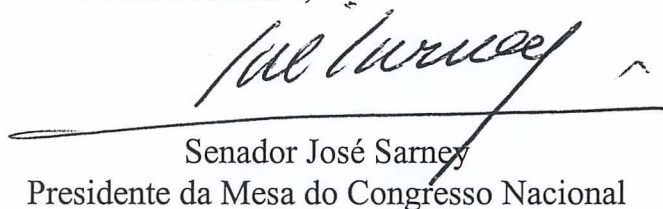 José Sarney
Senador José Sarney
Presidente da Mesa do Congresso Nacional